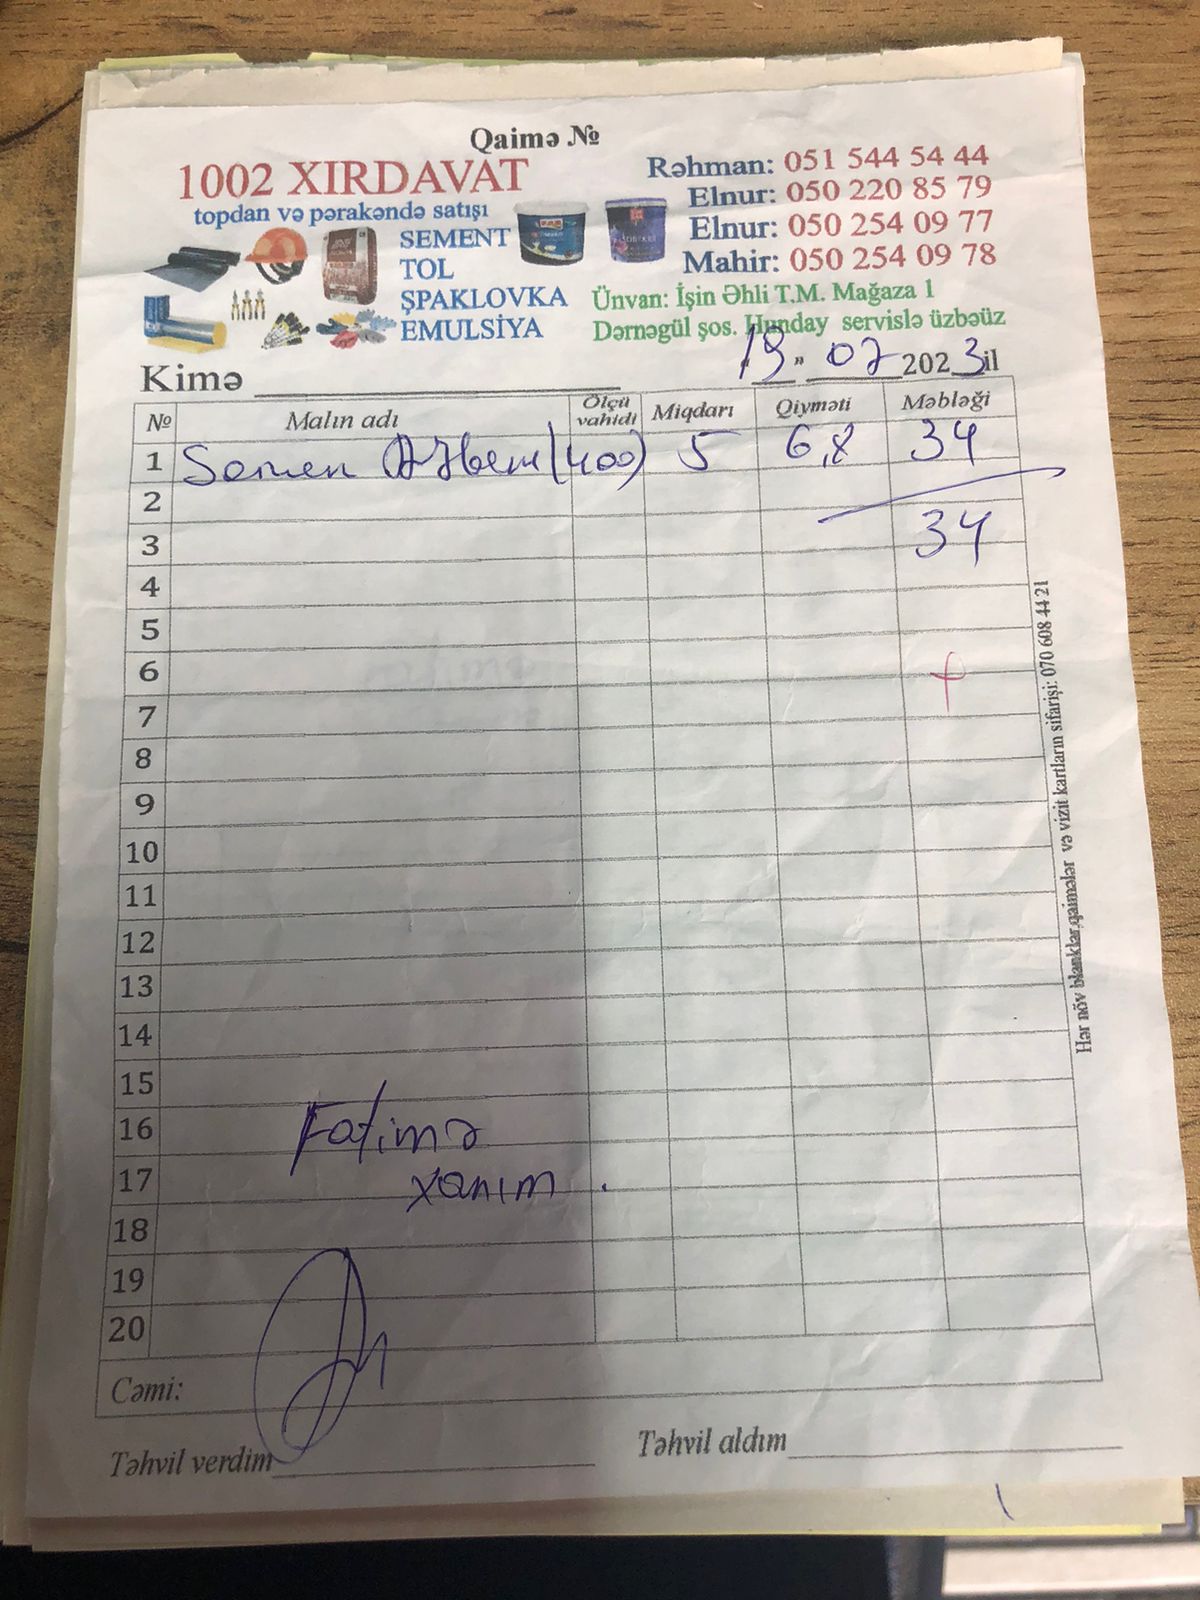 Qaimə №
1002 XIRDAVAT
topdan və pərakəndə satışı
SEMENT
TOL
ŞPAKLOVKA
EMULSİYA
Rəhman: 051 544 54 44
Elnur: 050 220 85 79
Elnur: 050 254 09 77
Mahir: 050 254 09 78
Ünvan: İşin Əhli T.M. Mağaza 1
Dərnəgül şos. Hunday servislə üzbəüz
Kimə
19 " 07 2023 il
№ Malın adı Ölçü vahidi Miqdarı Qiyməti Məbləği
1 Semen (400) 5 6,8 34
2
3 34
4
5
6
7
8
9
10
11
12
13
14
15
16 Fatimə
17 xanım.
18
19
20
Cəmi:
Təhvil verdim Təhvil aldım
Hər növ blanklar, qaimələr və vizit kartların sifarişi: 070 608 44 21